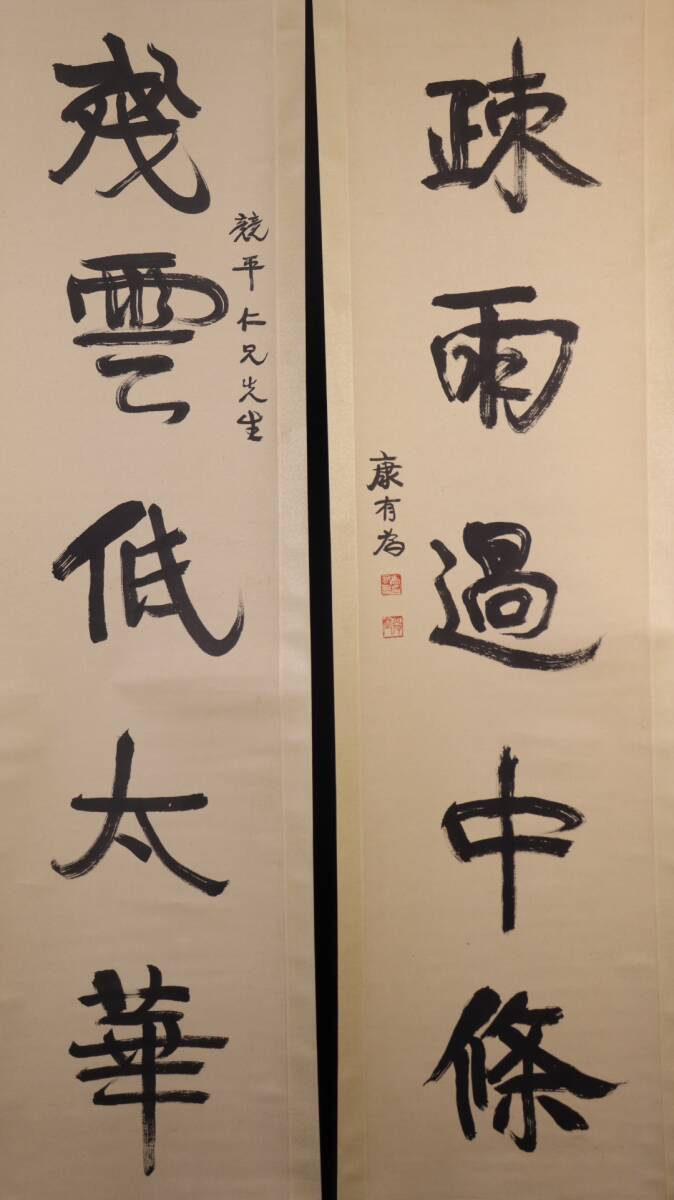 疎雨過中條
康有為
競平仁兄先生
残雲低太華